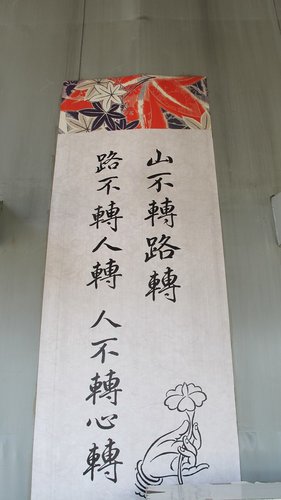 山不轉路轉
路不轉人轉 人不轉心轉